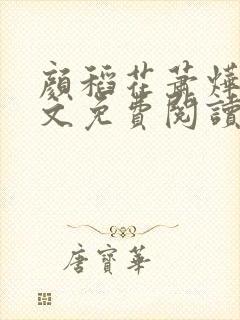 顏稻花蕭燁
文免費閱讀
唐寶華